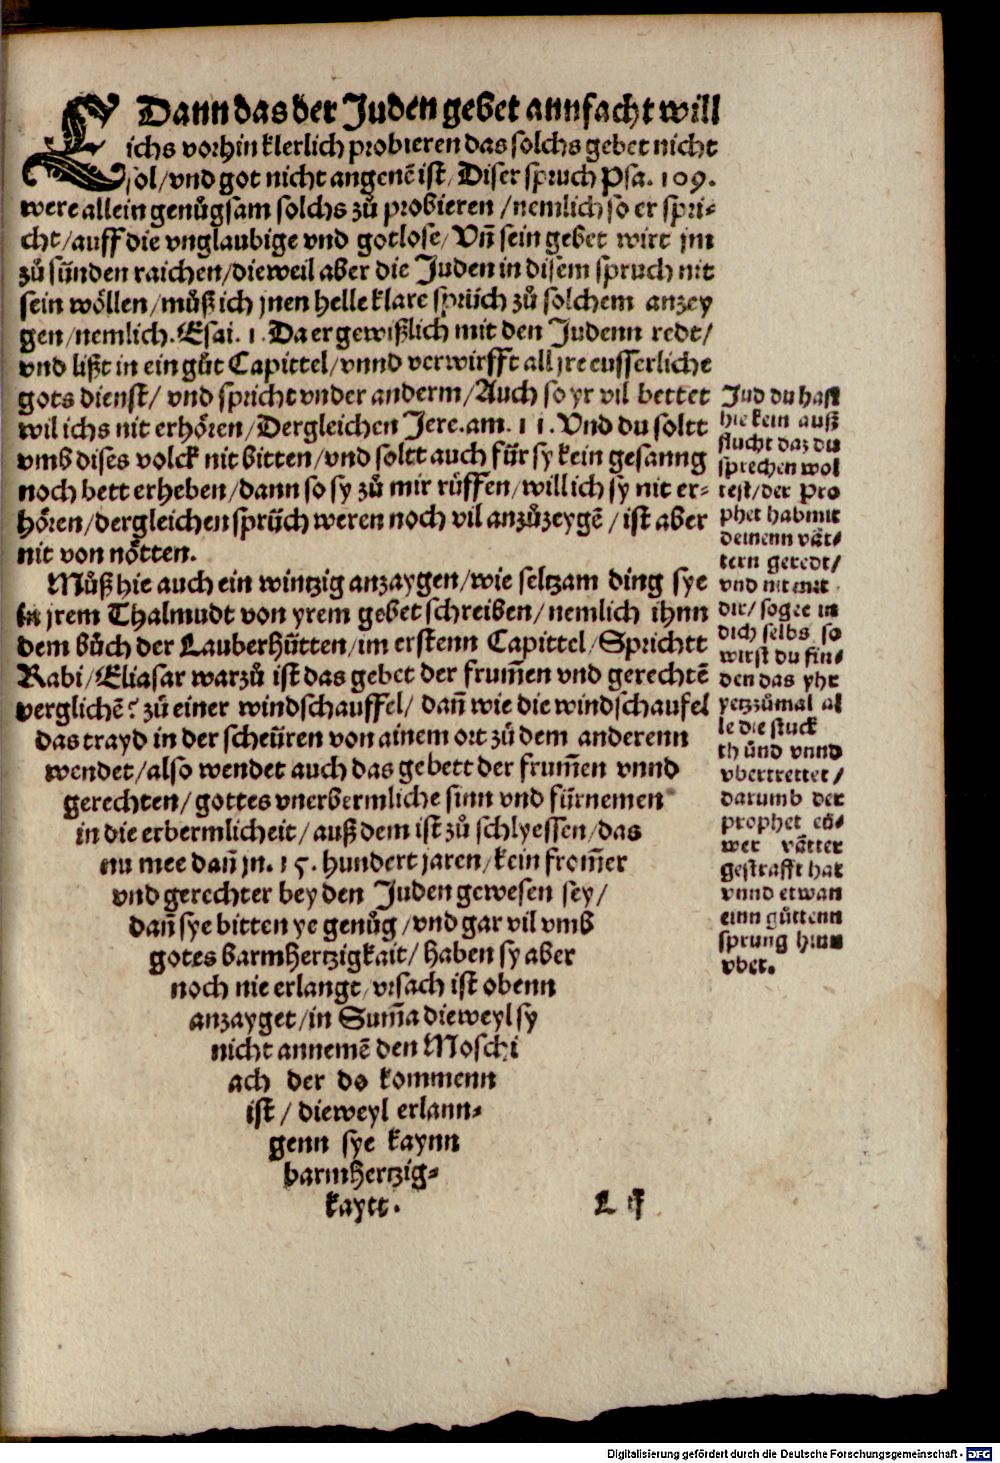 EDann das der Juden gebet annfacht will
ichs vorhin klerlich probieren das solchs gebet nicht
sol/vnd got nicht angenē ist/Diser spruch Psa. 109.
were allein genůgsam solchs zů probieren/nemlich so er spri-
cht/auff die vnglaubige vnd gotlose/Vñ sein gebet wirt jm
zů sünden raichen/dieweil aber die Juden in disem spruch nit
sein wöllen/můß ich jnen helle klare sprüch zů solchem anzey
gen/nemlich. Esai. 1. Da er gewißlich mit den Judenn redt/
vnd lißt in ein gůt Capittel/vnnd verwirfft all jre eusserliche
gots dienst/ vnd spricht vnder anderm/Auch so yr vil bettet
wil ichs nit erhören/Dergleichen Jere. am. 11. Vnd du soltt
vmb dises volck nit bitten/vnd soltt auch für sy kein gesanng
noch bett erheben/dann so sy zů mir růffen/will ich sy nit er-
hören/dergleichen sprüch weren noch vil anzůzeygē/ist aber
nit von nötten.
Můß hie auch ein wintzig anzaygen/wie seltzam ding sye
in jrem Thalmudt von yrem gebet schreiben/nemlich ihnn
dem bůch der Lauberhütten/im erstenn Capittel/Sprichtt
Rabi/Eliasar warzů ist das gebet der frum̄en vnd gerechtē
verglichē? zů einer windschauffel/ dañ wie die windschaufel
das trayd in der scheüren von ainem ort zů dem anderenn
wendet/also wendet auch das gebett der frum̄en vnnd
gerechten/gottes vnerbermliche sinn vnd fürnemen
in die erbermlicheit/auß dem ist zů schlyessen/das
nu mee dañ jn. 15. hundert jaren/kein from̄er
vnd gerechter bey den Juden gewesen sey/
dañ sye bitten ye genůg/vnd gar vil vmb
gotes barmhertzigkait/haben sy aber
noch nie erlangt/vrsach ist obenn
anzayget/in Sum̄a dieweyl sy
nicht annemē den Moschi
ach der do kommenn
ist/ dieweyl erlann-
genn sye kaynn
barmhertzig-
kaytt.
L ij
Jud du hast
hie kein auß
flucht daz du
sprechen wol
test/der Pro
phet hab mit
deinenn vät-
tern geredt/
vnd nit mit
dir/ sogee in
dich selbs so
wirst du fin-
den das yhr
yetzzůmal al
le die stuck
thünd vnnd
vbertrettet/
darumb der
prophet eü-
wer vätter
gestrafft hat
vnnd etwan
einn gůttenn
sprung hinn
vber.
Digitalisierung gefördert durch die Deutsche Forschungsgemeinschaft - DFG